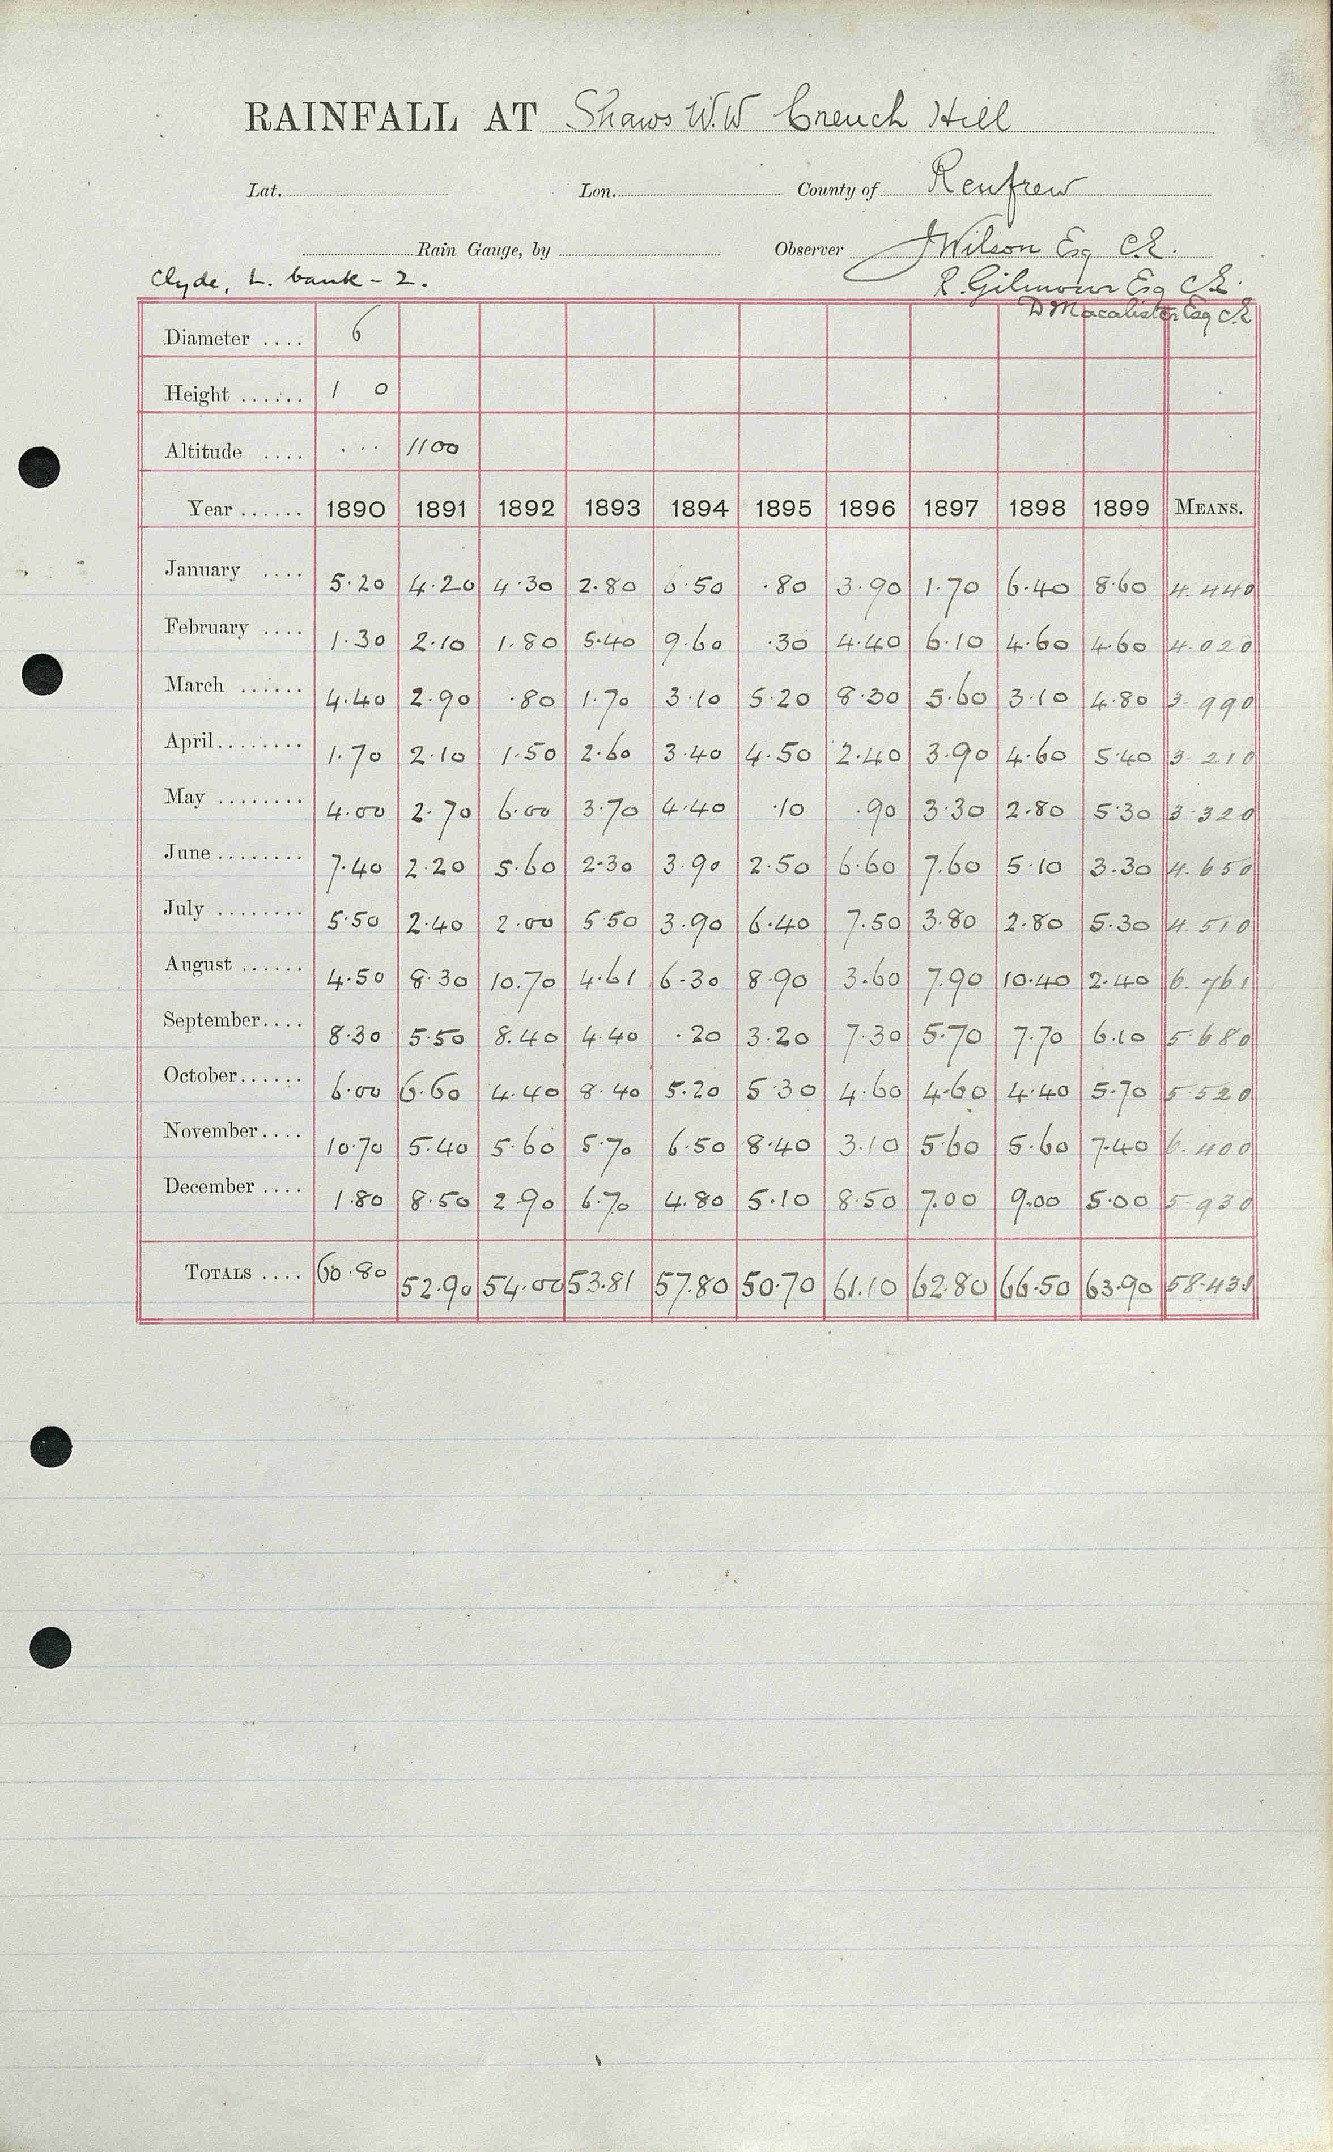 RAINFALL AT Shaws W.W Creuch Hill
Lat. Lon. County of Renfrew
Rain Gauge, by Observer J Wilson Esq C.E.
Clyde, L. bank - 2. R. Gilmour Esq C.E.
D Macalister Esq CE
Diameter .... 6
Height ...... 1 0
Altitude .... ... 1100
Year ...... 1890 1891 1892 1893 1894 1895 1896 1897 1898 1899 MEANS.
January .... 5.20 4.20 4.30 2.80 6.50 .80 3.90 1.70 6.40 8.60 4.440
February .... 1.30 2.10 1.80 5.40 9.60 .30 4.40 6.10 4.60 4.60 4.020
March ...... 4.40 2.90 .80 1.70 3.10 5.20 8.30 5.60 3.10 4.80 3.990
April........ 1.70 2.10 1.50 2.60 3.40 4.50 2.40 3.90 4.60 5.40 3.210
May ........ 4.00 2.70 6.00 3.70 4.40 .10 .90 3.30 2.80 5.30 3.320
June ........ 7.40 2.20 5.60 2.30 3.90 2.50 6.60 7.60 5.10 3.30 4.650
July ........ 5.50 2.40 2.00 5.50 3.90 6.40 7.50 3.80 2.80 5.30 4.510
August ...... 4.50 8.30 10.70 4.61 6.30 8.90 3.60 7.90 10.40 2.40 6.761
September.... 8.30 5.50 8.40 4.40 .20 3.20 7.30 5.70 7.70 6.10 5.680
October...... 6.00 6.60 4.40 8.40 5.20 5.30 4.60 4.60 4.40 5.70 5.520
November.... 10.70 5.40 5.60 5.70 6.50 8.40 3.10 5.60 5.60 7.40 6.400
December .... 1.80 8.50 2.90 6.70 4.80 5.10 8.50 7.00 9.00 5.00 5.930
TOTALS .... 60.80 52.90 54.00 53.81 57.80 50.70 61.10 62.80 66.50 63.90 58.431